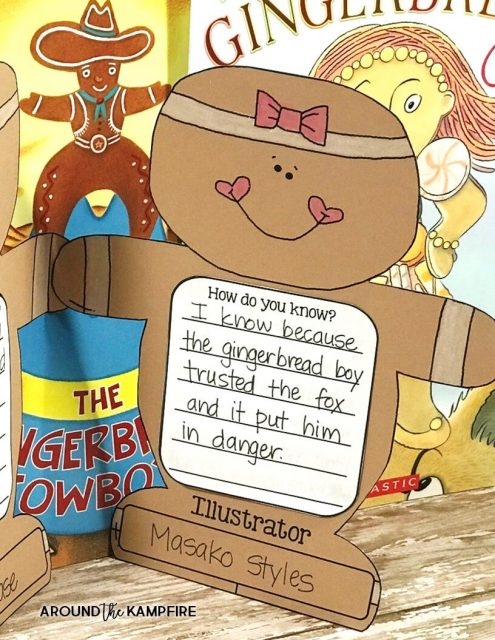 GINGERBRE
How do you know?
I know because
the gingerbread boy
trusted the fox
and it put him
in danger.
Illustrator
Masako Styles
THE
NGERBR
COWBO
ASTIC
ose
AROUND the KAMPFIRE